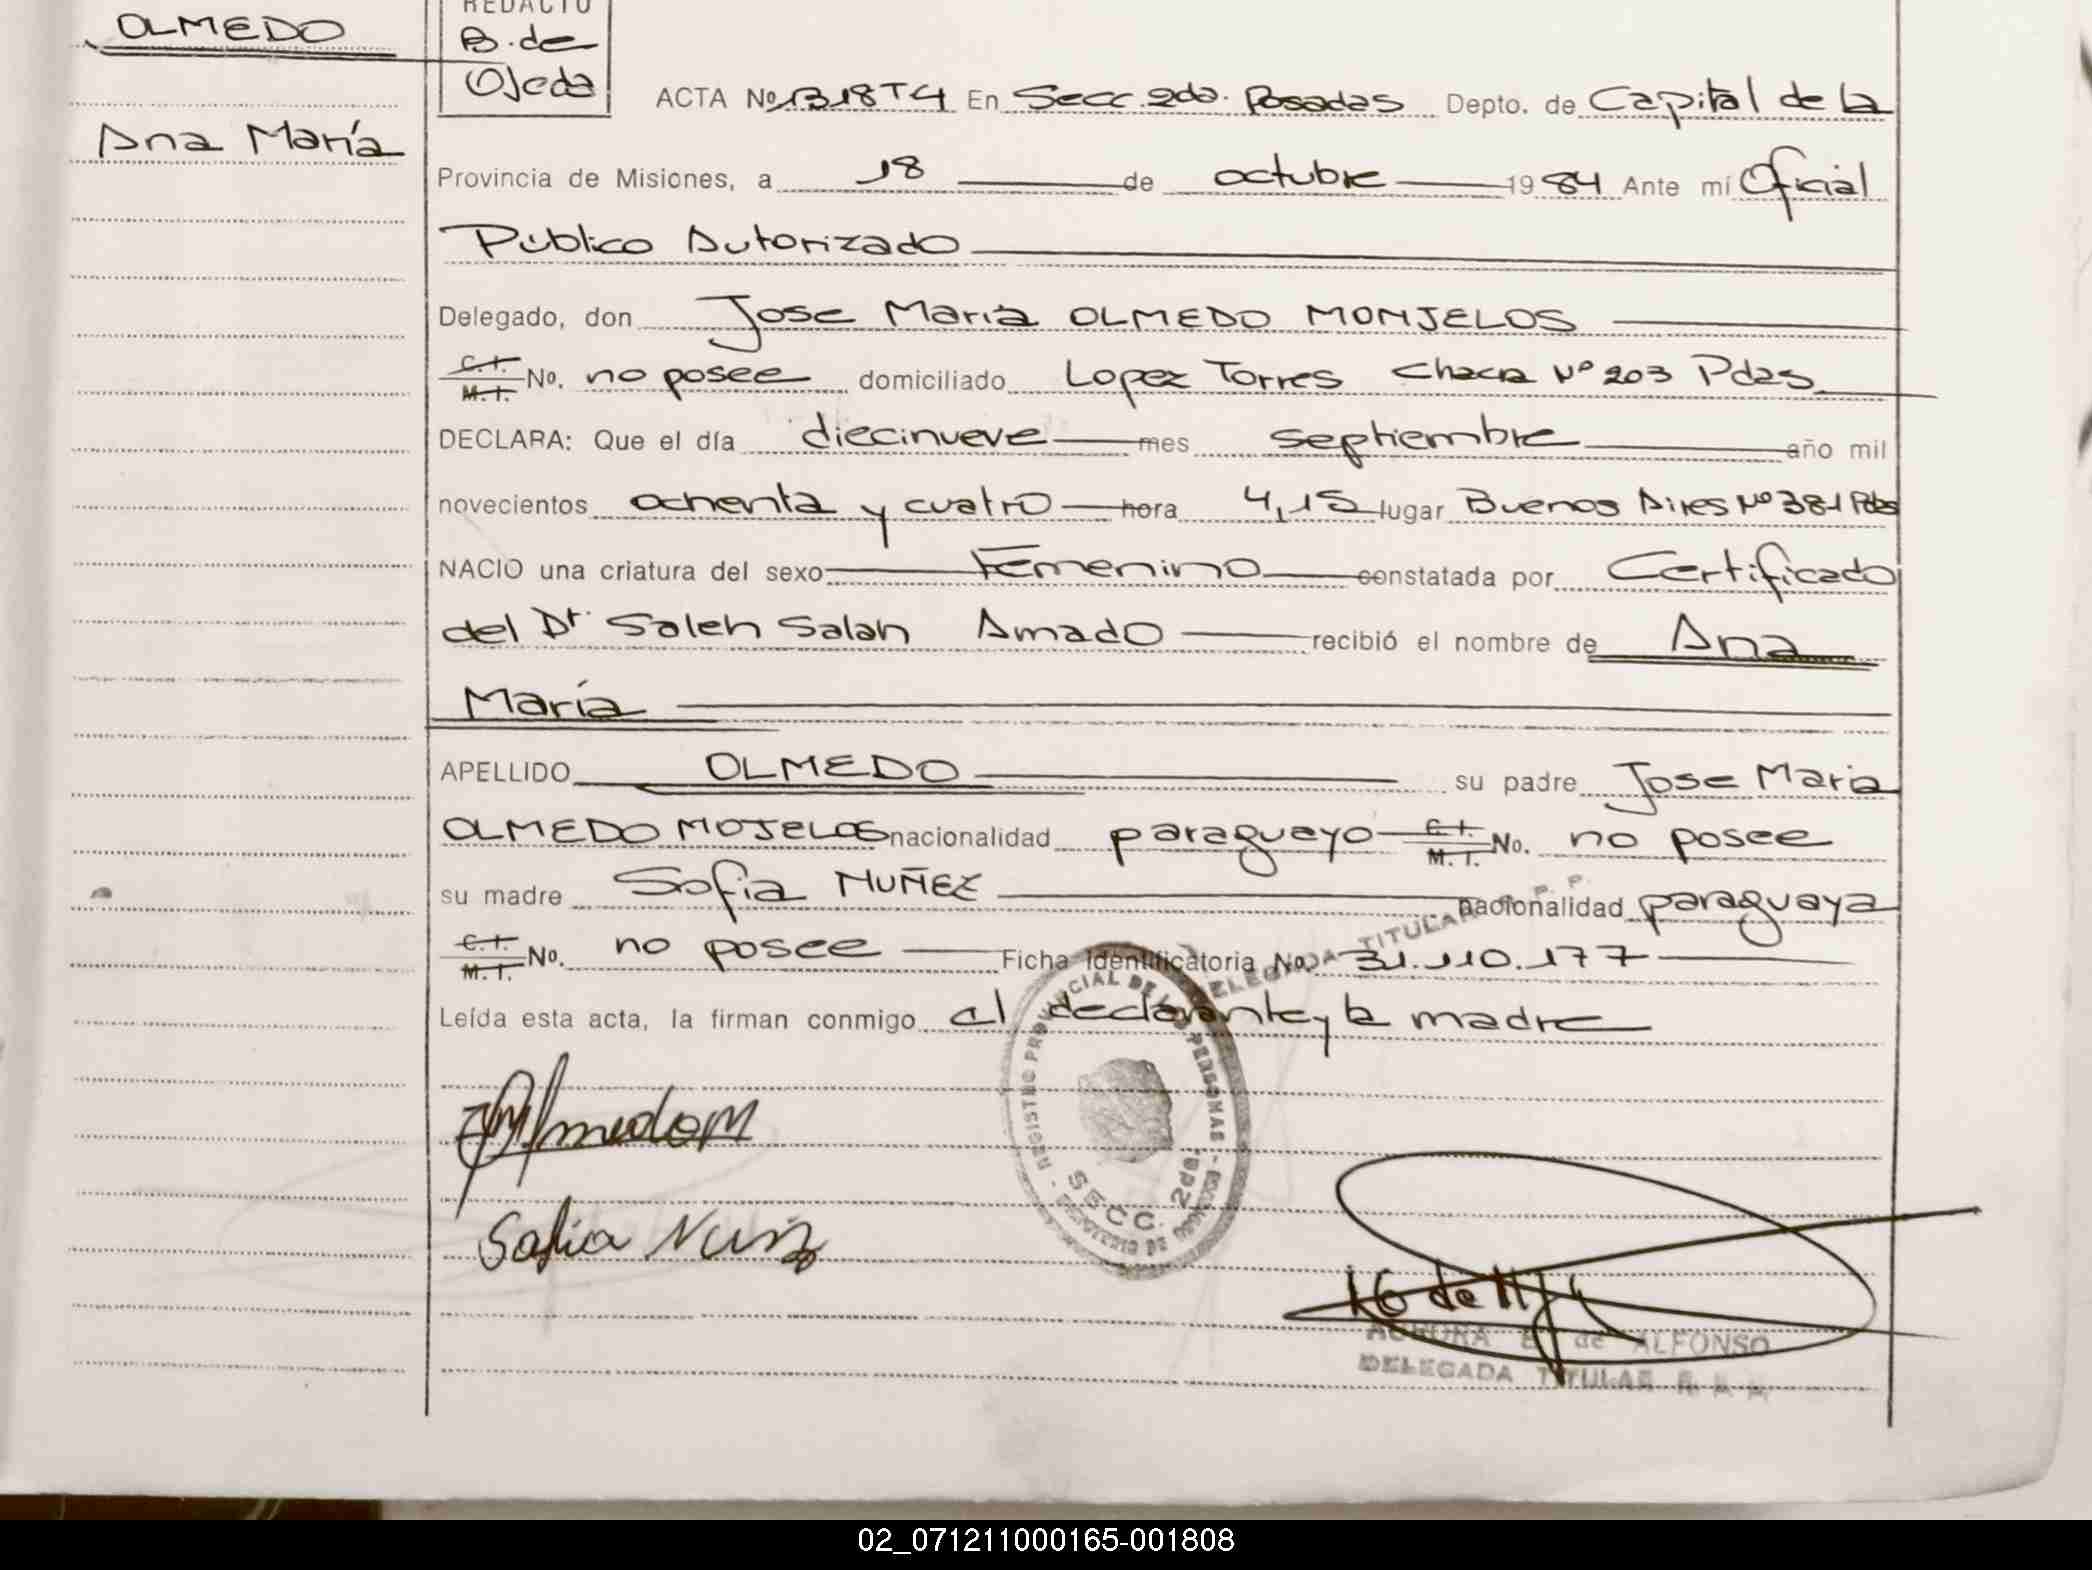 OLMEDO
Ana María
REDACTO
B. de
Ojeda
ACTA No 1318 T 4 En Secc. 2da. Posadas Depto. de Capital de la
Provincia de Misiones, a 18 de octubre 1984 Ante mí Oficial
Público Autorizado
Delegado, don Jose María OLMEDO MONJELOS
C.I. M.I. No. no posee domiciliado Lopez Torres Chacra Nº 203 Pdas
DECLARA: Que el día diecinueve mes septiembre año mil
novecientos ochenta y cuatro hora 4,15 lugar Buenos Aires Nº 381 Pdas
NACIO una criatura del sexo Femenino constatada por Certificado
del Dr. Saleh Salah Amado recibió el nombre de Ana
María
APELLIDO OLMEDO su padre Jose Maria
OLMEDO MOJELOS nacionalidad paraguayo C.I. M.I. No. no posee
su madre Sofia NUÑEZ nacionalidad paraguaya
C.I. M.I. No. no posee Ficha Identificatoria No. 31.110.177
Leída esta acta, la firman conmigo el declarante y la madre
DELEGADA TITULAR
REGISTRO PROVINCIAL DE LAS PERSONAS
SECC. 2da.
Sofia Nuñez
de ALFONSO
DELEGADA TITULAR
02_071211000165-001808